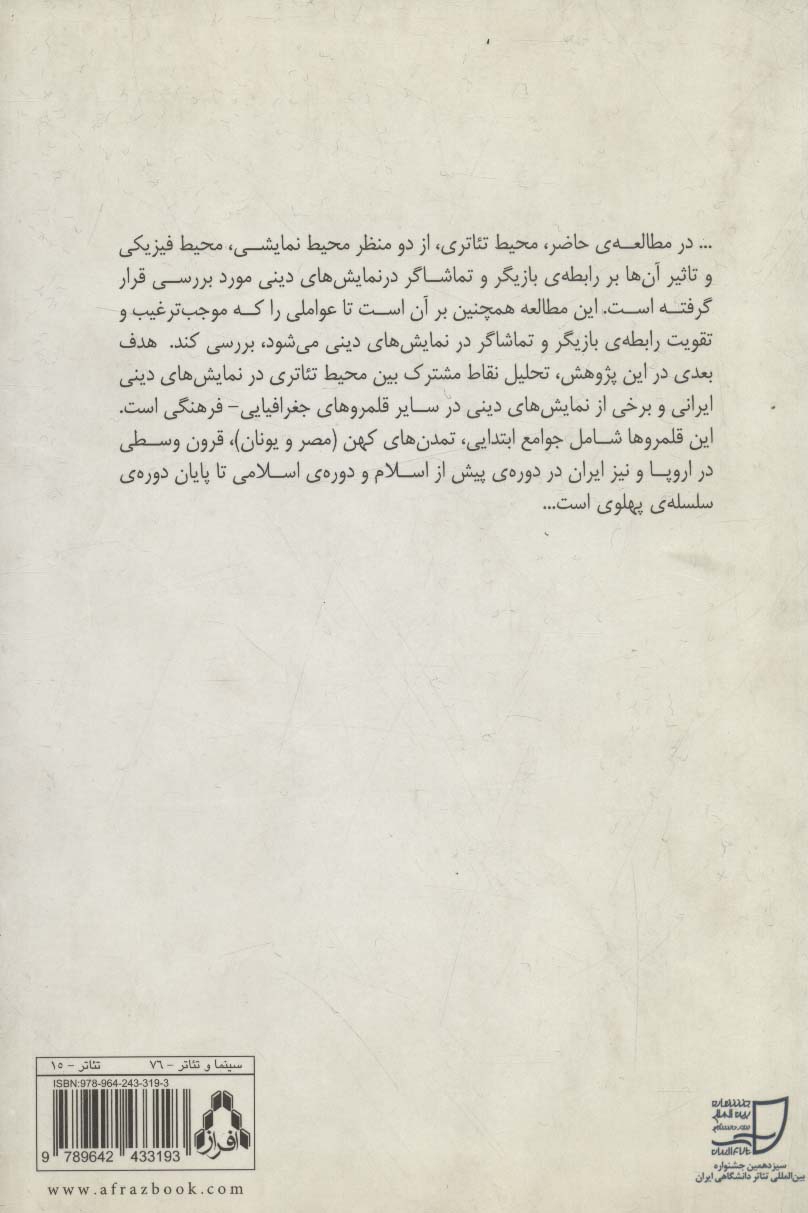 ... در مطالعه‌ی حاضر، محیط تئاتری، از دو منظر محیط نمایشی، محیط فیزیکی
و تاثیر آن‌ها بر رابطه‌ی بازیگر و تماشاگر درنمایش‌های دینی مورد بررسی قرار
گرفته است. این مطالعه همچنین بر آن است تا عواملی را که موجب‌ترغیب و
تقویت رابطه‌ی بازیگر و تماشاگر در نمایش‌های دینی می‌شود، بررسی کند. هدف
بعدی در این پژوهش، تحلیل نقاط مشترک بین محیط تئاتری در نمایش‌های دینی
ایرانی و برخی از نمایش‌های دینی در سایر قلمروهای جغرافیایی- فرهنگی است.
این قلمروها شامل جوامع ابتدایی، تمدن‌های کهن (مصر و یونان)، قرون وسطی
در اروپا و نیز ایران در دوره‌ی پیش از اسلام و دوره‌ی اسلامی تا پایان دوره‌ی
سلسله‌ی پهلوی است...
سینما و تئاتر - ۷۶ تئاتر - ۱۵
ISBN:978-964-243-319-3
افراز
9 789642 433193
www.afrazbook.com
سیزدهمین جشنواره
بین‌المللی تئاتر دانشگاهی ایران